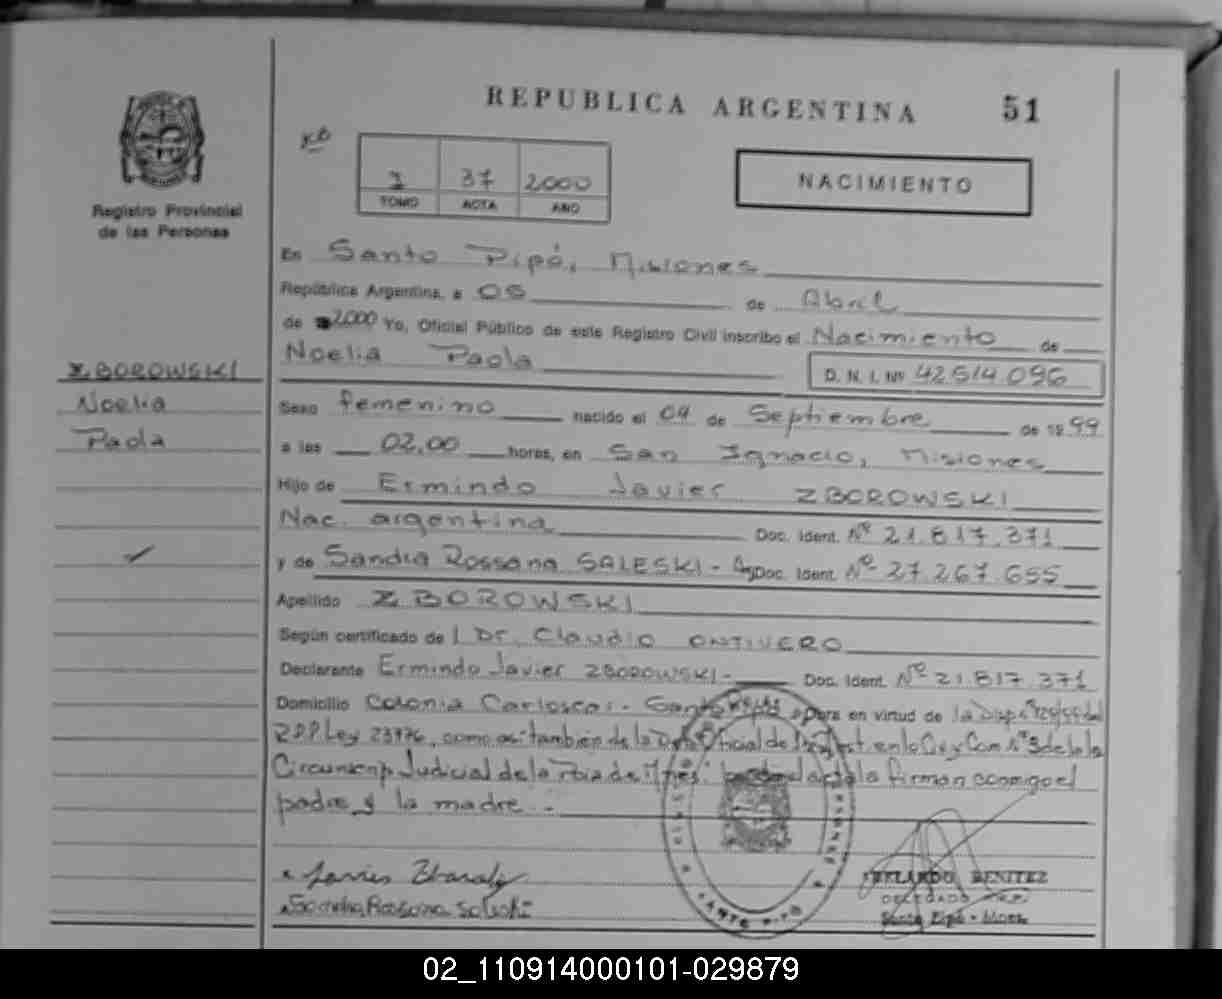 REPUBLICA ARGENTINA 51
Registro Provincial
de las Personas
1 37 2000
TOMO ACTA AÑO
NACIMIENTO
En Santo Pipó, Misiones
República Argentina, a 05 de Abril
de 2000 Yo, Oficial Público de este Registro Civil inscribo el Nacimiento de
Noelia Paola D. N. I. Nº 42.514.096
ZBOROWSKI
Noelia
Paola
Sexo femenino nacido el 04 de Septiembre de 1999
a las 02,00 horas, en San Ignacio, Misiones
Hijo de Ermindo Javier ZBOROWSKI
Nac. argentina Doc. Ident. Nº 21.817.371
y de Sandra Rossana SALESKI - Doc. Ident. Nº 27.267.655
Apellido ZBOROWSKI
Según certificado de l Dr. Claudio ONTIVERO
Declarante Ermindo Javier ZBOROWSKI - Doc. Ident. Nº 21.817.371
Domicilio Colonia Santo Pipó en virtud de la Disp.
Ley 23776, como asi también de la Oficial de en lo Civ y Com Nº 3 de la
Judicial de la de la firman conmigo el
padre y la madre. -
Sandra Rossana Saleski
BENITEZ
DELEGADO
Santo Pipó - Mnes
SANTO PIPO
02_110914000101-029879